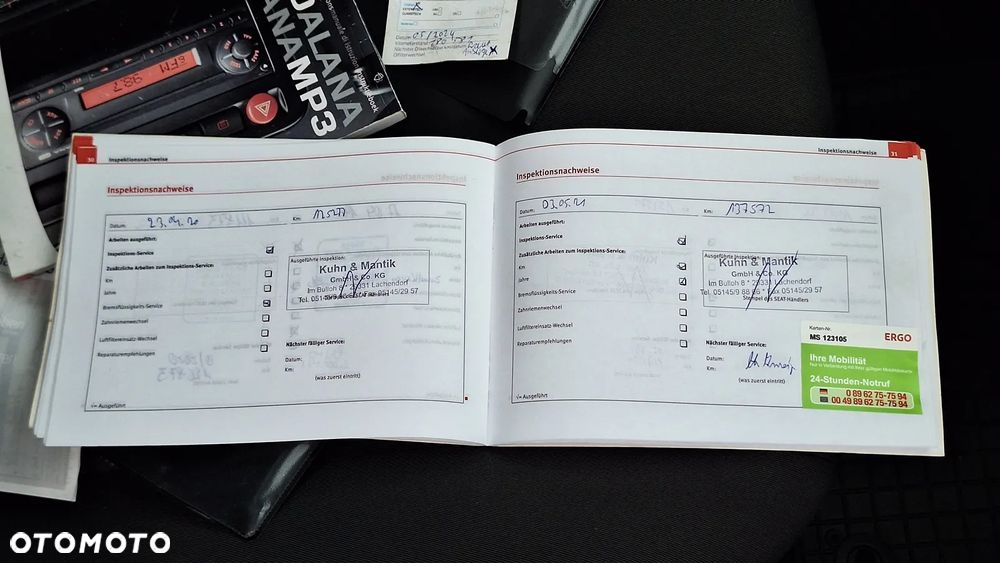 DALANA
ANAMP3
FM 98.7
Datum: 05/2024
30 Inspektionsnachweise
Inspektionsnachweise
Datum: 23.04.20 Km: 125277
Arbeiten ausgeführt:
Inspektions-Service
Zusätzliche Arbeiten zum Inspektions-Service:
Km
Jahre
Bremsflüssigkeits-Service
Zahnriemenwechsel
Luftfiltereinsatz-Wechsel
Reparaturempfehlungen
√= Ausgeführt
Ausgeführte Inspektion:
Kuhn & Mantik
GmbH & Co. KG
Im Bulloh 8 * 29331 Lachendorf
Nächster fälliger Service:
Datum:
Km:
(was zuerst eintritt)
Inspektionsnachweise 31
Inspektionsnachweise
Datum: 03.05.21 Km: 137572
Arbeiten ausgeführt:
Inspektions-Service
Zusätzliche Arbeiten zum Inspektions-Service:
Km
Jahre
Bremsflüssigkeits-Service
Zahnriemenwechsel
Luftfiltereinsatz-Wechsel
Reparaturempfehlungen
√= Ausgeführt
Ausgeführte Inspektion:
Kuhn & Mantik
GmbH & Co. KG
Im Bulloh 8 * 29331 Lachendorf
Tel. 05145/9 88 66 * Fax 05145/29 57
Stempel des SEAT-Händlers
Nächster fälliger Service:
Datum:
Km:
(was zuerst eintritt)
Karten-Nr.
MS 123105 ERGO
Ihre Mobilität
Nur in Verbindung mit Ihrer gültigen Mobilitätskarte
24-Stunden-Notruf
0 89 62 75-75 94
00 49 89 62 75-75 94
OTOMOTO